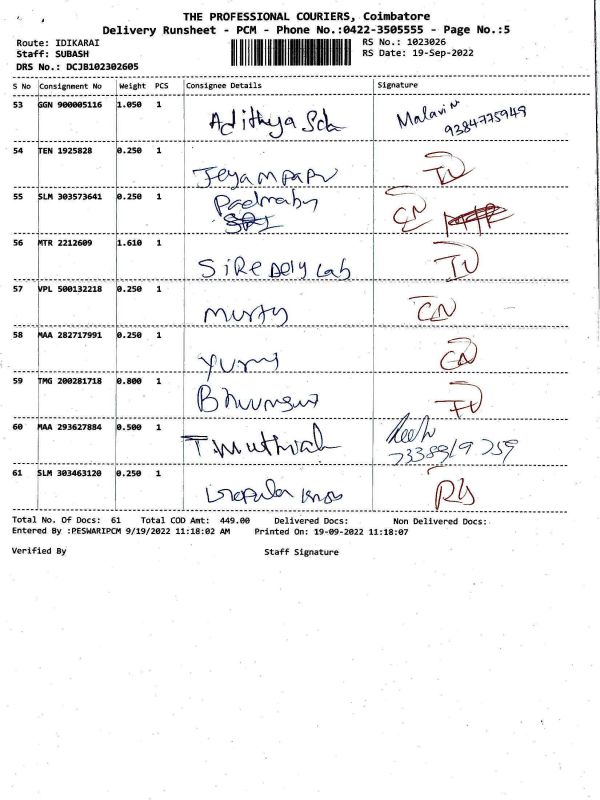 THE PROFESSIONAL COURIERS, Coimbatore
Delivery Runsheet - PCM - Phone No.:0422-3505555 - Page No.:5
Route: IDIKARAI RS No.: 1023026
Staff: SUBASH RS Date: 19-Sep-2022
DRS No.: DCJB102302605
S No Consignment No Weight PCS Consignee Details Signature
53 GGN 900005116 1.050 1
Adithya Sch Malavi N
9384775949
54 TEN 1925828 0.250 1
Jeyam papu
55 SLM 303573641 0.250 1
CN
56 MTR 2212609 1.610 1
Lab
57 VPL 500132218 0.250 1
CN
58 MAA 282717991 0.250 1
CN
59 TMG 200281718 0.800 1
60 MAA 293627884 0.500 1
T. muthiah
61 SLM 303463120 0.250 1
Total No. Of Docs: 61 Total COD Amt: 449.00 Delivered Docs: Non Delivered Docs:
Entered By :PESWARIPCM 9/19/2022 11:18:02 AM Printed On: 19-09-2022 11:18:07
Verified By Staff Signature